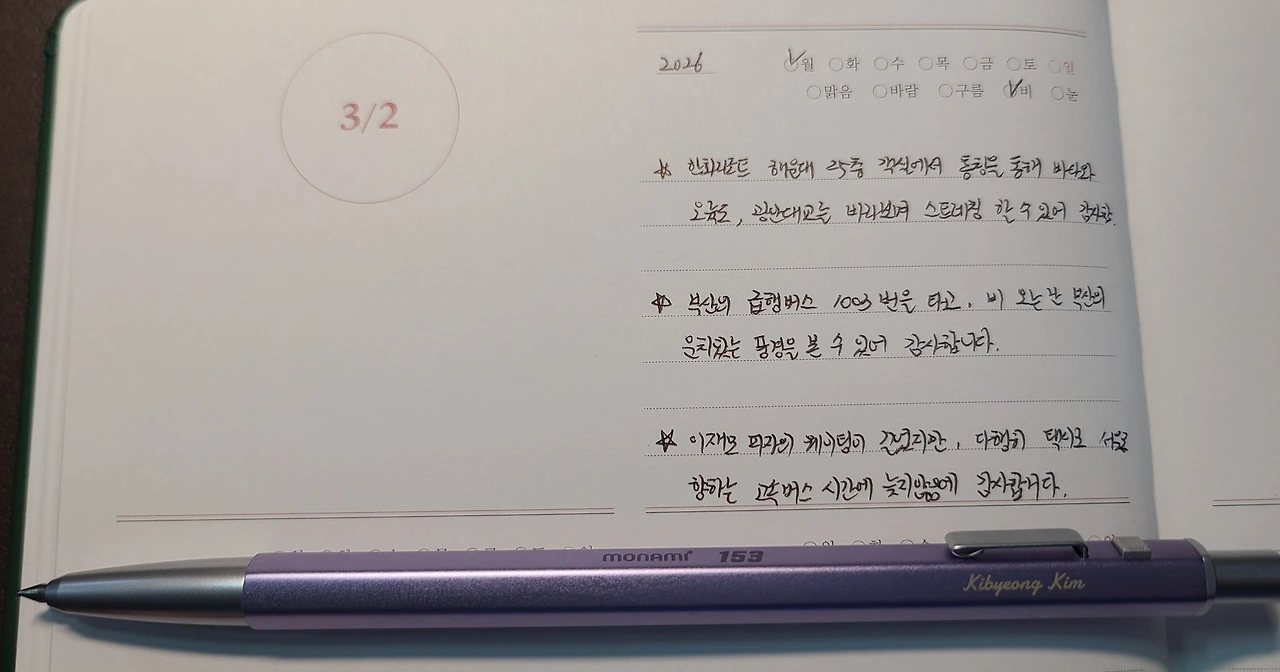 3/2
2026 월 화 수 목 금 토 일
맑음 바람 구름 비 눈
☆ 한화리조트 해운대 25층 객실에서 통창을 통해 바다와
오륙도, 광안대교를 바라보며 스트레칭 할 수 있어 감사함.
☆ 부산의 급행버스 1003번을 타고, 비 오는 난 부산의
운치있는 풍경을 볼 수 있어 감사합니다.
☆ 이재모 피자의 웨이팅이 길었지만, 다행히 택시로 서울로
향하는 고속버스 시간에 늦지않음에 감사합니다.
monami 153
Kibyeong Kim